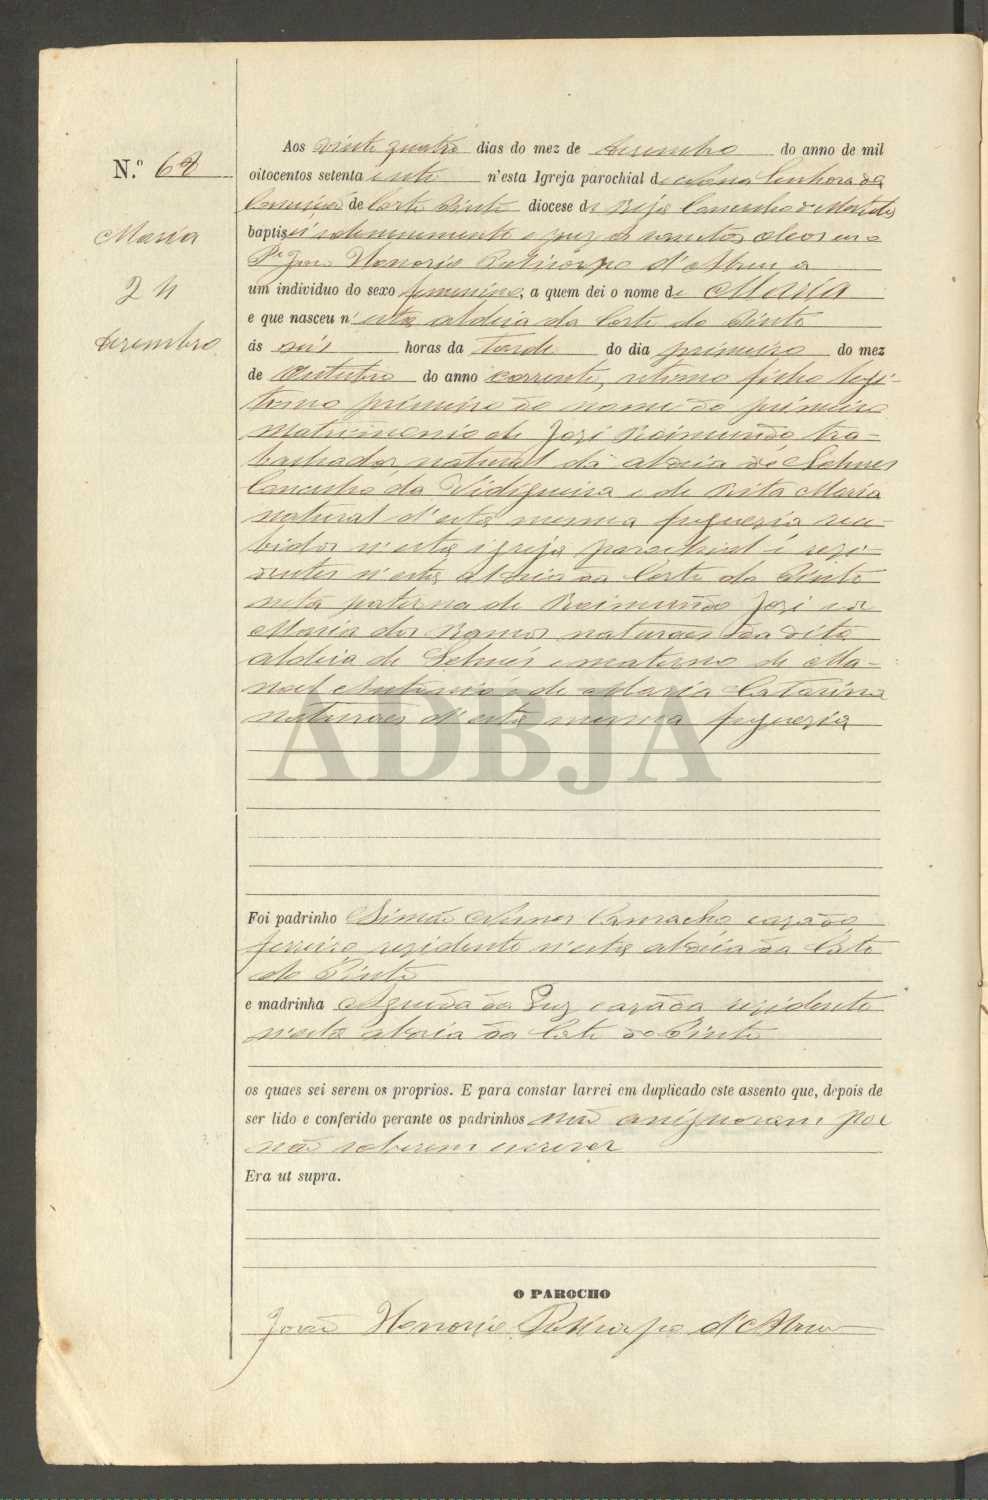 N.º 62
Maria
24
Dezembro
Aos vinte quatro dias do mez de Dezembro do anno de mil
oitocentos setenta e n'esta Igreja parochial de Nossa Senhora da
Conceição de Corte Pinto diocese de Beja Concelho de Mertola
baptisei solemnemente e puz os santos oleos eu o
P.e João Honorio Policarpo d'Abreu a
um individuo do sexo femenino, a quem dei o nome de Maria
e que nasceu n'esta aldeia da Corte do Pinto
ás seis horas da tarde do dia primeiro do mez
de Outubro do anno corrente, setimo filho legi-
timo primeiro do nome do primeiro
Matrimonio de José Raimundo, tra-
balhador natural da aldeia de Selmes
Concelho da Vidigueira e de Rita Maria
natural d'esta mesma freguezia rece-
bidos n'esta igreja parochial e rezi-
dentes n'esta aldeia da Corte do Pinto
neta paterna de Raimundo José e de
Maria dos Ramos naturaes da dita
aldeia de Selmes e materno de Ma-
noel Antonio e de Maria Catarina
naturaes d'esta mesma freguezia
ADBJA
Foi padrinho Simão Camacho cazado
ferreiro rezidente n'esta aldeia da Corte
do Pinto
e madrinha Agueda da Luz cazada rezidente
n'esta aldeia da Corte do Pinto
os quaes sei serem os proprios. E para constar larrei em duplicado este assento que, depois de
ser lido e conferido perante os padrinhos não assignaram por
não saberem escrever
Era ut supra.
O PAROCHO
João Honorio Policarpo d'Abreu